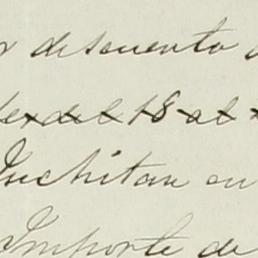 descuento
del 18 al
Juchitan en
Importe de